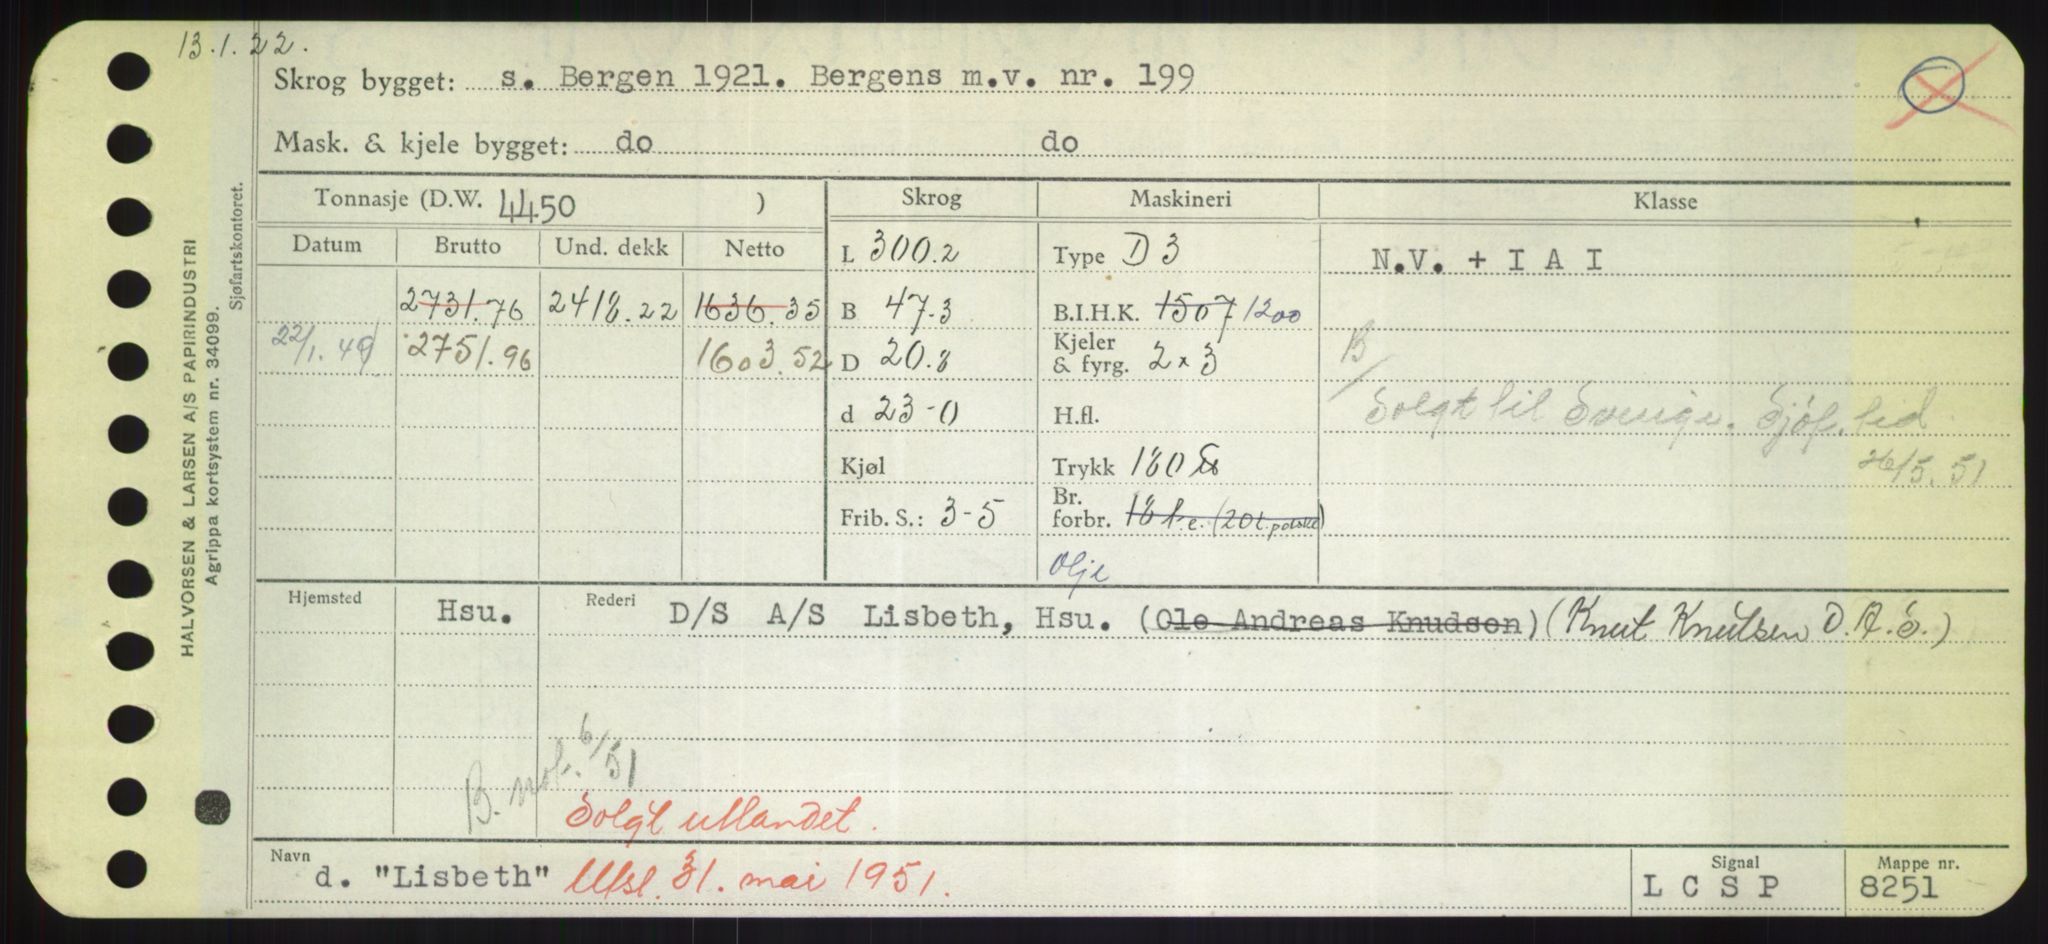 13.1.22.
Skrog bygget: s. Bergen 1921. Bergens m.v. nr. 199
Mask. & kjele bygget: do do
Tonnasje (D.W. 4450 ) Skrog Maskineri Klasse
Datum Brutto Und. dekk Netto
L 300.2 Type D 3 N.V. + I A I
2731.76 2418.22 1636.35 B 47.3 B.I.H.K. 1507 1200
22/1.49 2751.96 1603.52 D 20.8 Kjeler & fyrg. 2 x 3
B/
d 23-0 H.fl. Solgt til Sverige. Sjøf. tid
Kjøl Trykk 180 26/5.51
Frib. S.: 3-5 Br. forbr. 18 t.e. (20 t. polske)
Olje
Hjemsted Hsu. Rederi D/S A/S Lisbeth, Hsu. (Ole Andreas Knudsen) (Knut Knutsen O.A.S.)
B. not. 6/51
Solgt utlandet.
Navn d. "Lisbeth" Utsl. 31. mai 1951. Signal L C S P Mappe nr. 8251
HALVORSEN & LARSEN A/S PAPIRINDUSTRI
Agrippa kortsystem nr. 34099.
Sjøfartskontoret.